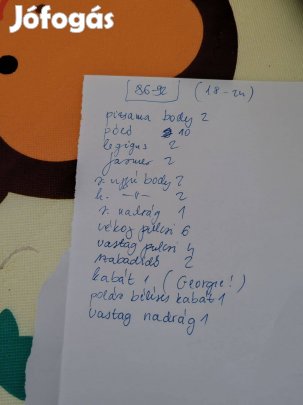 Jófogás
86-92 (18-24)
pizsama body 2
póló 10
leggigs 2
farmer 2
r. ujjú body 2
h. -"- 2
r. nadrág 1
vékony pulcsi 6
vastag pulcsi 4
szabadidő 2
kabát 1 (George!)
polár béléses kabát 1
vastag nadrág 1